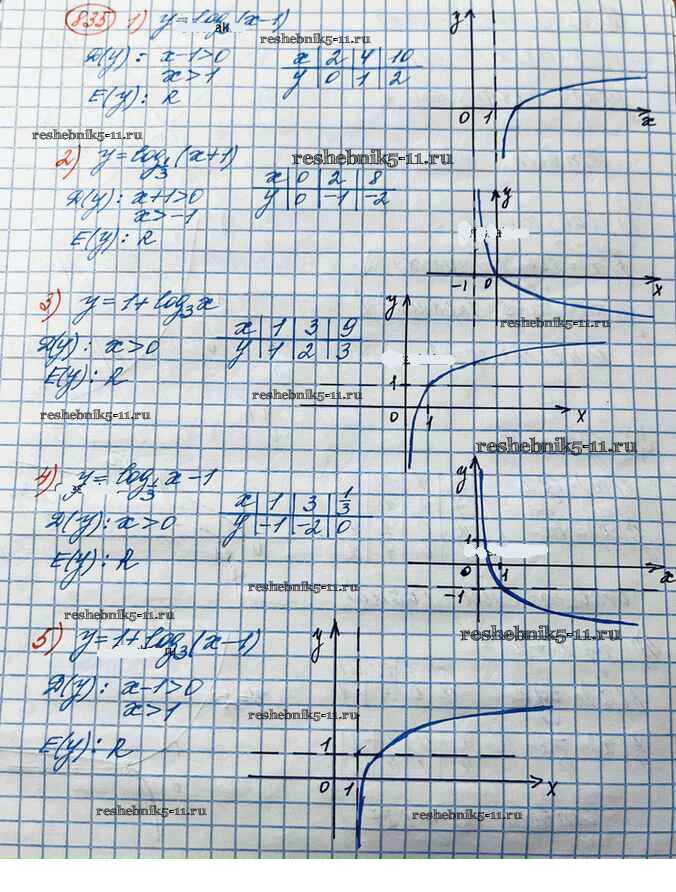 835 1) y = log (x-1)
reshebnik5-11.ru
D(y): x-1>0
x>1
x | 2 | 4 | 10
y | 0 | 1 | 2
E(y): R
y
0 1 x
reshebnik5-11.ru
2) y = log 1/3 (x+1)
reshebnik5-11.ru
D(y): x+1>0
x>-1
x | 0 | 2 | 8
y | 0 | -1 | -2
E(y): R
y
-1 0 x
reshebnik5-11.ru
3) y = 1+log3 x
x | 1 | 3 | 9
y | 1 | 2 | 3
D(y): x>0
E(y): R
y
1
0 1 x
reshebnik5-11.ru
reshebnik5-11.ru
reshebnik5-11.ru
4) y = log 1/3 x-1
x | 1 | 3 | 1/3
y | -1 | -2 | 0
D(y): x>0
E(y): R
y
1
0 1 x
-1
reshebnik5-11.ru
reshebnik5-11.ru
reshebnik5-11.ru
5) y = 1+log3 (x-1)
D(y): x-1>0
x>1
reshebnik5-11.ru
E(y): R
y
1
0 1 x
reshebnik5-11.ru
reshebnik5-11.ru